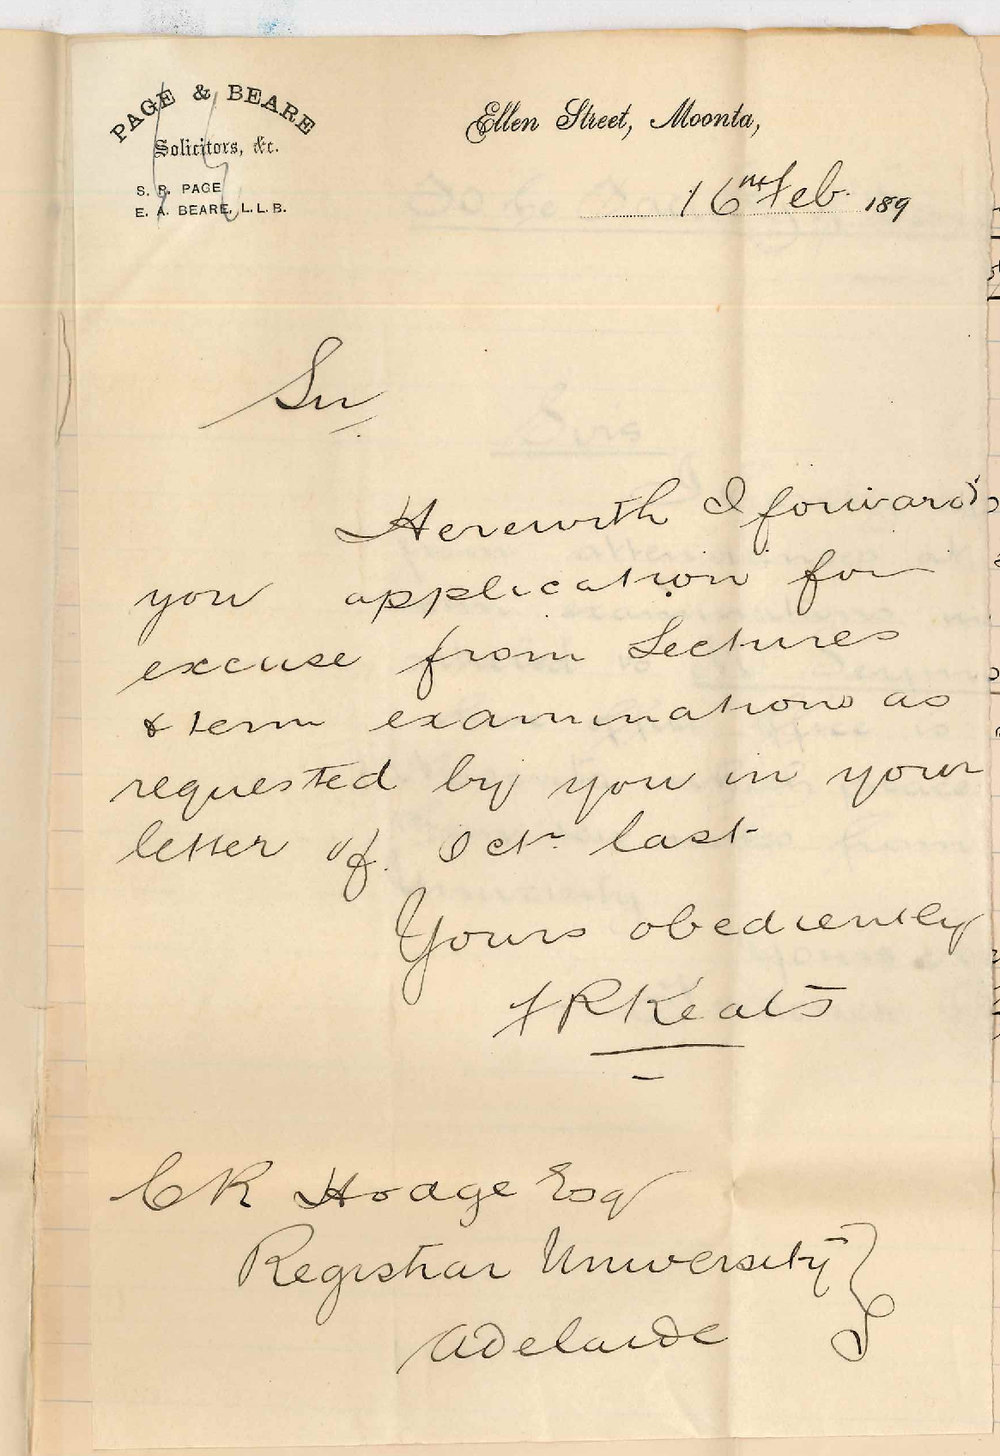 PAGE & BEARE
Solicitors, &c.
S. R. PAGE
E. A. BEARE, L.L.B.
Ellen Street, Moonta,
16 Feb. 189
Sir,
Herewith I forward
you application for
excuse from Lectures
& term examinations as
requested by you in your
letter of Oct. last
Yours obediently
R Keats
C R Hodge Esq
Registrar University
Adelaide